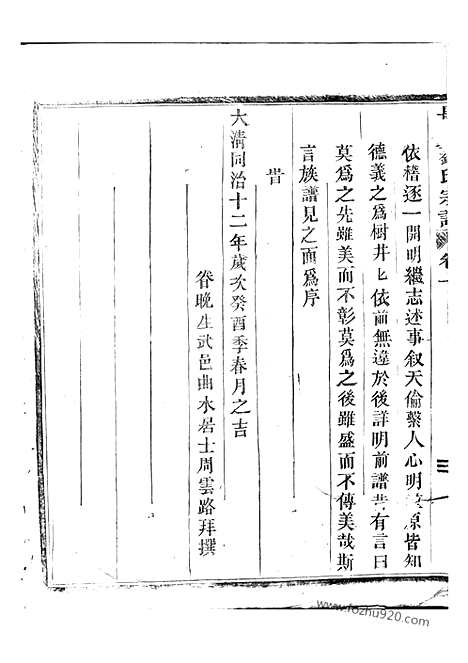 氏宗譜 卷一
依稽逐一開明繼志述事叙天倫繫人心明 原皆知
德義之爲樹井匕依前無違於後詳明前譜昔有言曰
莫爲之先雖美而不彰莫爲之後雖盛而不傳美哉斯
言族譜見之而爲序
旹
大清同治十二年歲次癸酉季春月之吉
眷晚生武邑曲水居士周雲路拜撰
www.fozhu920.com